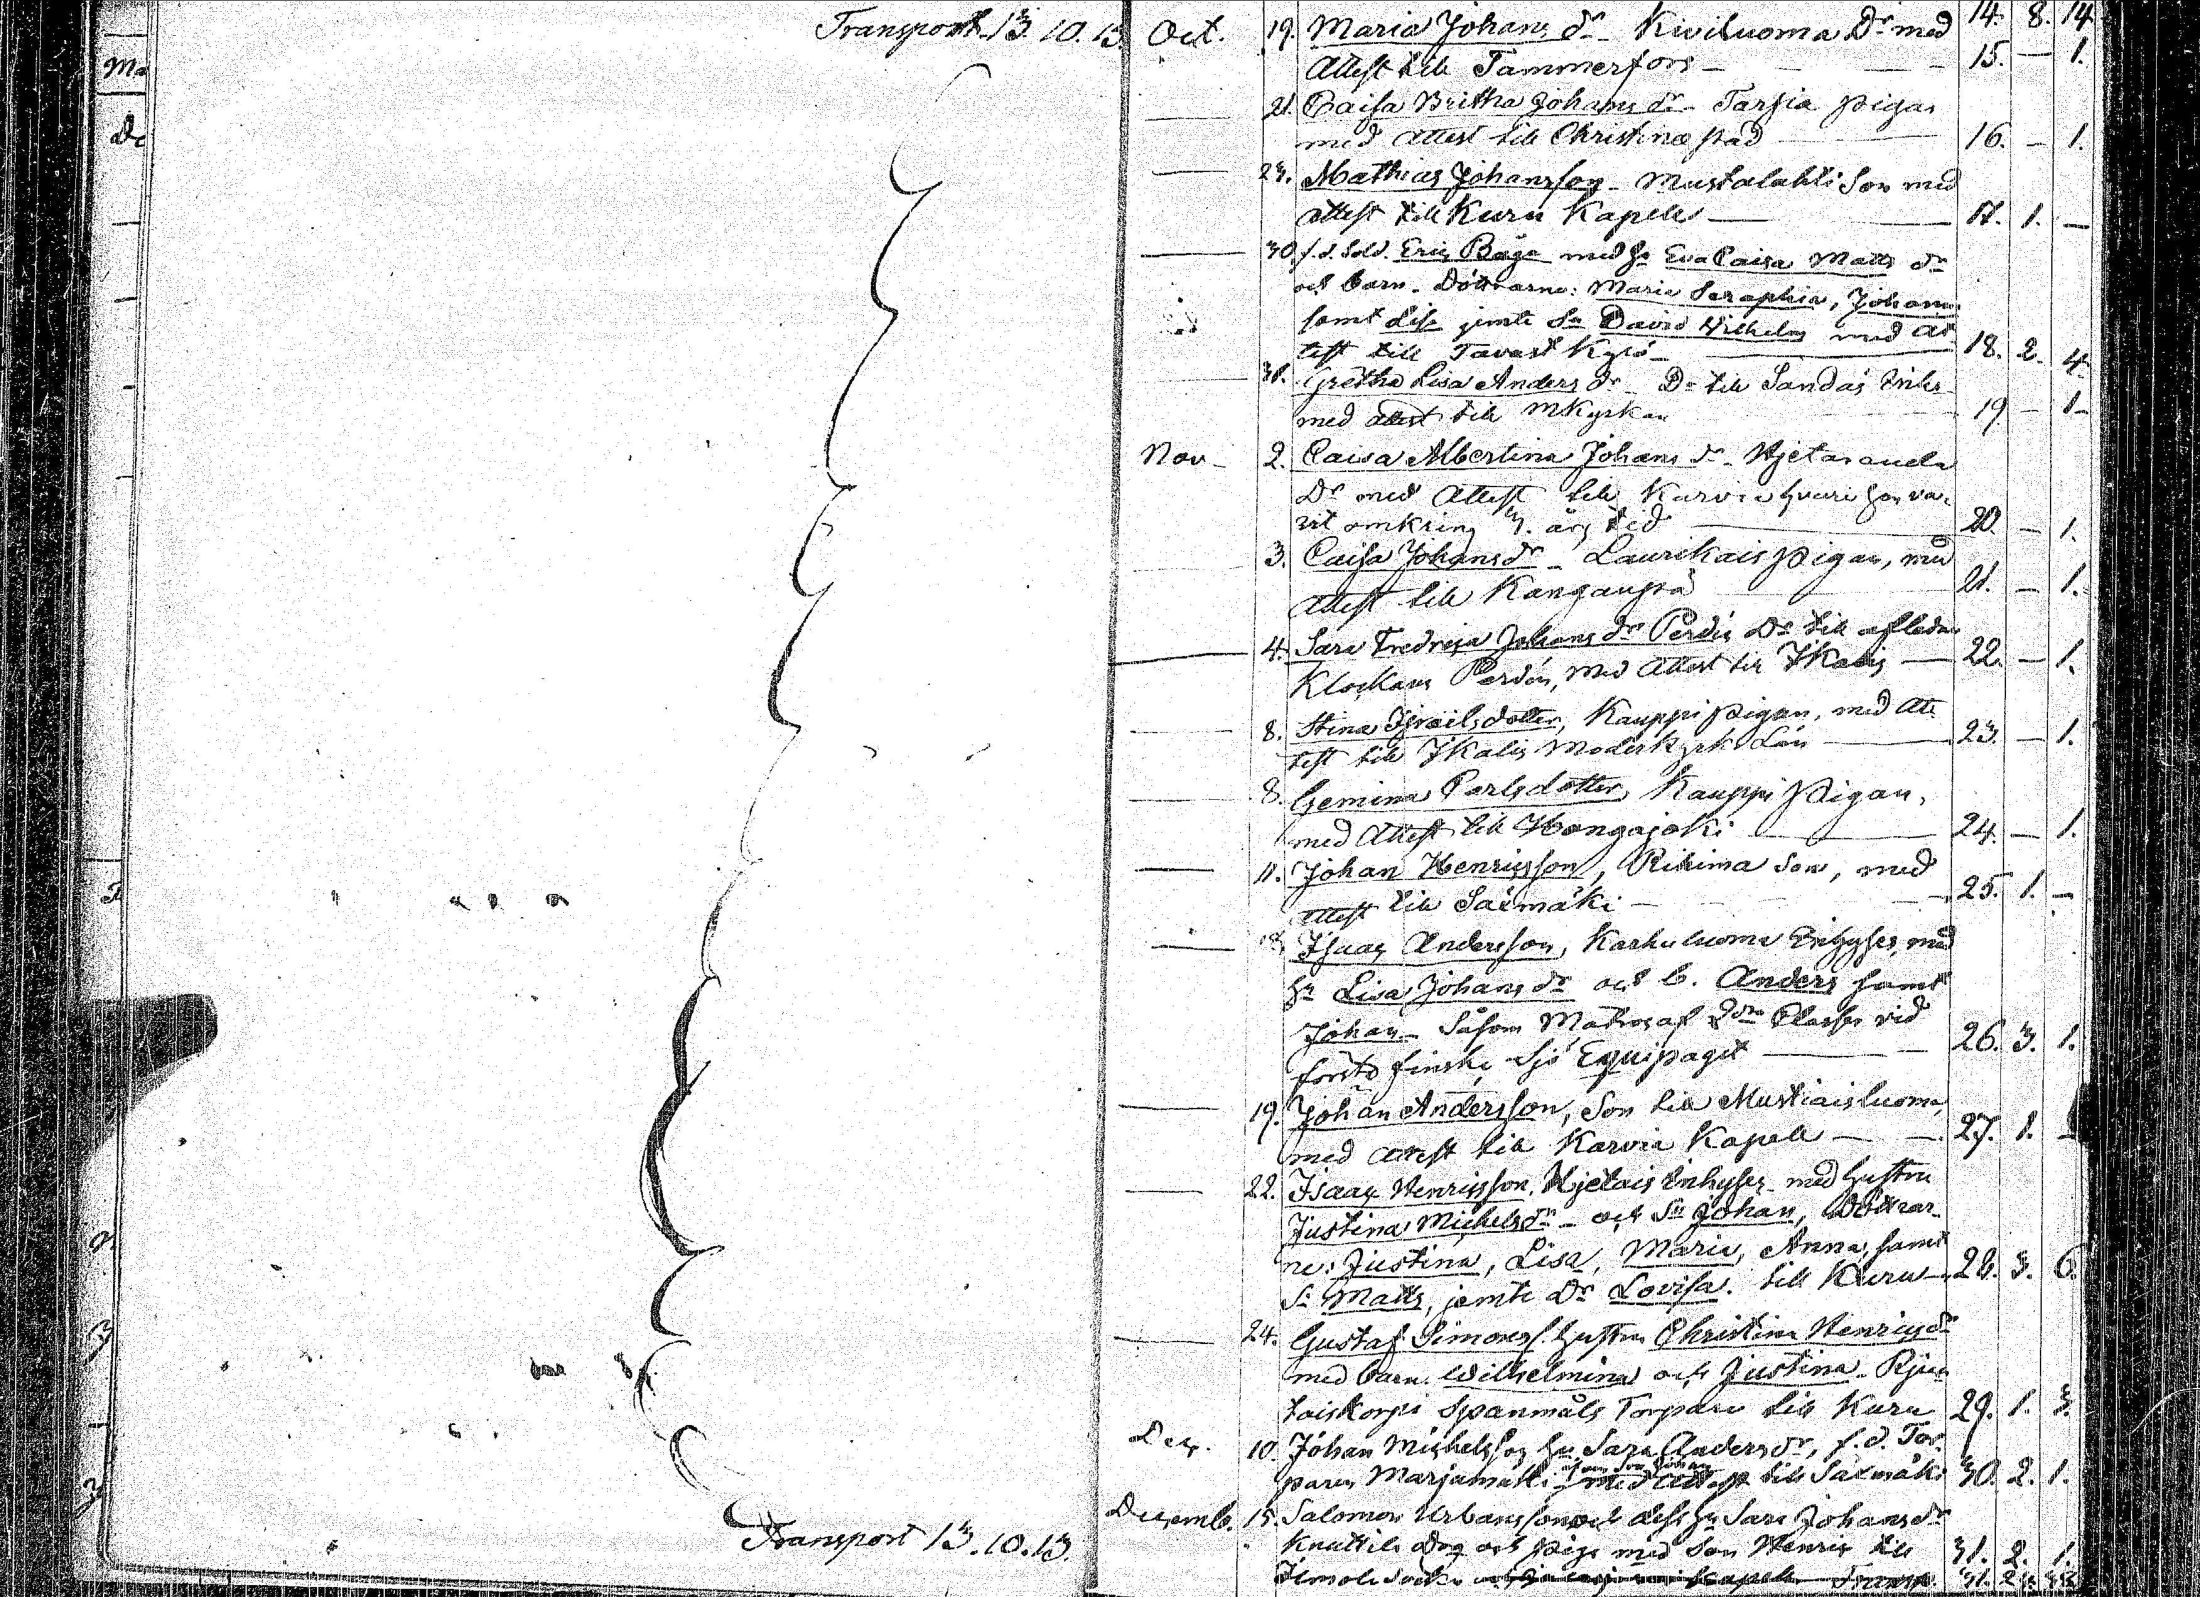 Transport 13. 10. 13.
Ma
De
Transport 13. 10. 13.
Oct. 19. Maria Johans dr Kiviluoma Dr med 14. 8. 14
Attest till Tammerfors — 15. — 1.
21. Caisa Britha Johans dr Tarsia pigan
med attest till Christinæstad 16. — 1.
23. Mathias Johansson Mustalahti Son med
attest till Kuru Kapell — 17. 1. —
30. f. d. Sold. Eric Båge med hu Eva Caisa Matts dr
och barn. Döttrarne: Maria Seraphia, Johanna
samt Lisa jemte Sn David Wilhelm med at-
test till Tavast Kyrö — 18. 2. 4.
31. Gretha Lisa Anders dr Dr till Sandås Inhs
med attest till MKyrkan 19 — 1 —
Nov — 2. Caisa Albertina Johans dr Hjetas
Dr med Attest till Karvia hvari hon va-
rit omkring 3. års tid 20. — 1.
3. Caisa Johansdr — Laurikais pigan, med
Attest till Kangasala 21. — 1.
4. Sara Fredrica Johans dr Perdén Dr till afledne
Klockaren Perdén, med Attest till Ikalis — 22. — 1.
8. Stina Israelsdotter, Kauppi pigan, med At-
test till Ikalis Moderkyrko 23. — 1.
8. Gemina Carlsdotter, Kauppi Pigan,
med Attest till Hongajoki 24. — 1.
11. Johan Henricsson, Rihima Son, med
attest till Säxmäki 25. 1. —
Isaac Andersson, Karhuluoma Inhyses, med
hu Lisa Johans dr och b. Anders samt
Johan — Såsom Matros af 2dra Classen vid
första finska Sjö Equipaget 26. 3. 1.
19. Johan Andersson, Son till Mustiaisluoma,
med attest till Karvia Kapell — 27. 1. —
22. Isaac Henricsson, Hjetais Inhyses med hustru
Justina Michelsdr — och Sn Johan, Döttrar-
ne: Justina, Lisa, Maria, Anna, samt
Sn Matts, jemte Dr Lovisa. till Kuru — 28. 3. 6.
24. Gustaf Simonss. hustru Christina Henricsdr
med barn. Wilhelmina och Justina — Rjuu
taiskorpi Spanmåls Torpare till Kuru 29. 1. 3.
Dec. 10. Johan Michelsson hu Sara Andersdr, f. d. Tor-
paren Marjamäki med Attest till Säxmäki 30. 2. 1.
Decemb. 15. Salomon Urbansson och dess hu Sara Johansdr
Knuttila Drg och piga med Son Henric till 31. 2. 1.
Transp. 31.